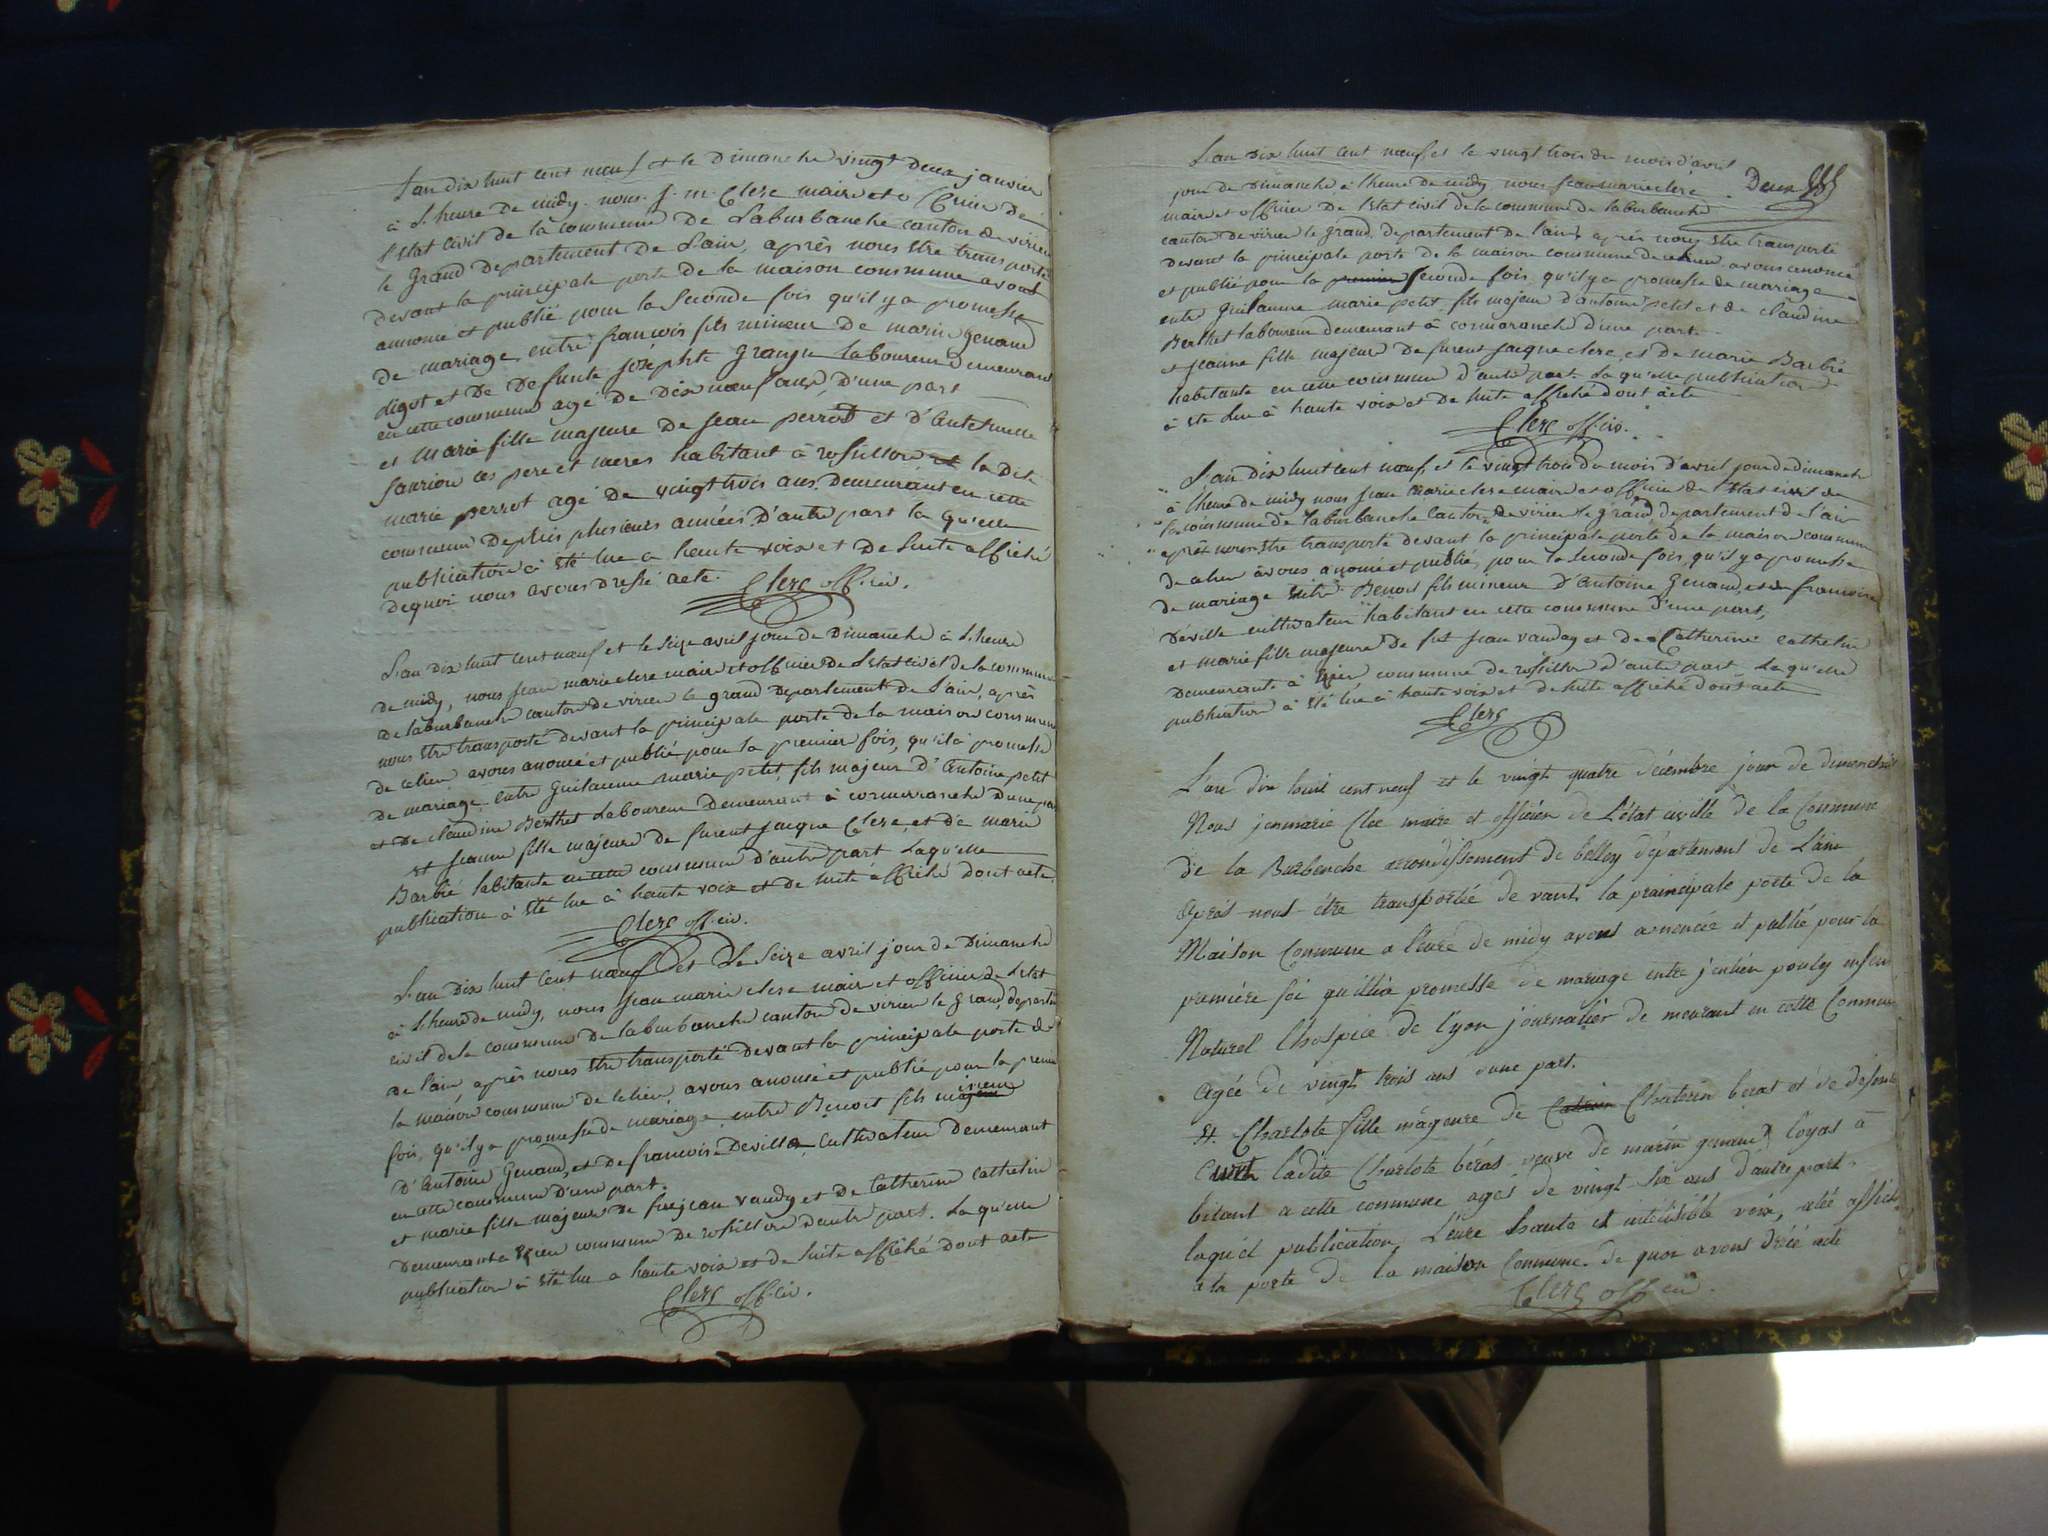 L'an dix huit cent nœuf et le Dimanche vingt deux janvier
à L'heure de midy nous J. m. Clerc maire et officier de
l'Etat Civil de la commune de Laburbanche canton de virieu
le grand Departement de Lain, après nous etre transporté
devant la principale porte de la maison commune avons
annoncé et publié pour la seconde fois qu'il y a promesse
de mariage entre francois fils mineur de marin genaud
digot et de Defunte josephte grange Laboureur demeurant
en cette commune agé de Dix nœuf ans, D'une part
et marie fille majeure de jean perrot et d'anthelmette
ses pere et meres habitant à rossillon la dite
marie perrot agé de vingt trois ans, Demeurant en cette
commune Depuis plusieurs années D'autre part la qu'elle
publication à eté lue a haute voix et De suite affiché
Dequoi nous avons Dressé acte. Clerc off. civ.
L'an dix huit cent nœuf et le seize avril jour de Dimanche à L'heure
de midy, nous jean marie clerc maire et officier de L'etat civil de la commune
de laburbanche canton de virieu le grand Departement de L'ain, après
nous etre transporté devant la principale porte de la maison commune
de ce lieu avons anoncé et publié pour la premier fois, qu'il à promesse
de mariage entre Guilaume marie petit, fils majeur d'antoine petit
et De claudine Berthet Laboureur Demeurant à cormaranche D'une part
et jeanne fille majeure de furent jacque Clerc, et de marie
Barbié habitante en cette commune d'autre part Laqu'elle
publication à eté lue à haute voix et de suite affiché dont acte.
Clerc off. civ.
L'an Dix huit Cent nœuf et Le Seize avril jour de Dimanche
à L'heure de midy, nous jean marie clerc mair et officier de L'etat
civil de la commune de laburbanche canton de virieu le grand, departement
de L'ain, après nous etre transporté devant la principale porte de
la maison commune de ce lieu, avons anoncé et publié pour la premier
fois, qu'il y a promesse de mariage, entre Benoit fils majeur mineur
D'antoine genaud, et de francoise Deville, Cultivateur Demeurant
en cette commune d'une part.
et marie fille majeure de fut jean vauday et de Catherine cathelin
Demeurante commune de rossillon d'autre part. La qu'elle
publication à eté lue a haute voix et de suite affiché dont acte
Clerc off. civ.
L'an Dix huit cent nœuf et le vingt trois du mois d'avril
Deux
jour de Dimanche, à l'heure de midy nous jean marie clerc
maire et officier de L'etat civil de la commune de laburbanche
canton de virieu le grand, departement de l'ain, après nous etre transporté
devant la principale porte de la maison commune de ce lieu avons anoncé
et publié pour la premier seconde fois, qu'il y a promesse de mariage
entre Guilaume marie petit fils majeur d'antoine petit et de claudine
Berthet laboureur demeurant à cormaranche d'une part.
et jeanne fille majeur de furent jacque clerc, et de marie Barbié
habitante en cette commune d'autre part La qu'elle publication
à eté lue à haute voix et de suite affiché dont acte
Clerc off. civ.
L'an dix huit cent nœuf, et le vingt trois du mois d'avril jour de dimanche
à l'heure de midy nous jean marie clerc mair et officier de l'etat civil de
la commune de laburbanche canton de virieu le grand, departement de l'ain
après nous etre transporté devant la principale porte de la maison commune
de ce lieu avons anoncé et publié, pour la seconde fois, qu'il y a promesse
de mariage entre Benoit fils mineur D'antoine genaud, et de francoise
Deville cultivateur habitant en cette commune d'une part,
et marie fille majeure de fut jean vauday et de Catherine cathelin
demeurante à commune de rossillon d'autre part La qu'elle
publication à eté lue à haute voix et de suite affiché dont acte
Clerc
L'an dix huit cent neuf et le vingt quatre décembre jour de dimenche
Nous jenmarie Clec maire et officier de L'état civille de la Commune
de la Burbenche arrondissement de belley département de L'ain
Après nous être transportée de vant, la praincipale porte de la
Maison Commune a l'eure de midy avons anoncée et publié pour la
première foi qu'illia promesse de mariage entre julien pouly enfen
Naturel L'hospice de l'yon journalier de meurant en cette Commune
agée de vingt trois ans d'une part.
Et Charlote fille mageure de Chaterin beras et de defente
ladite Charlote béras veuve de marin genaud loyas à
bitant a cette commune agés de vingt six ans d'autre part.
laquel publication Leure haute et intélisible voix, atée affiché
a la porte de la maison Commune. de quoi avons dréé acte
Clerc off civ.